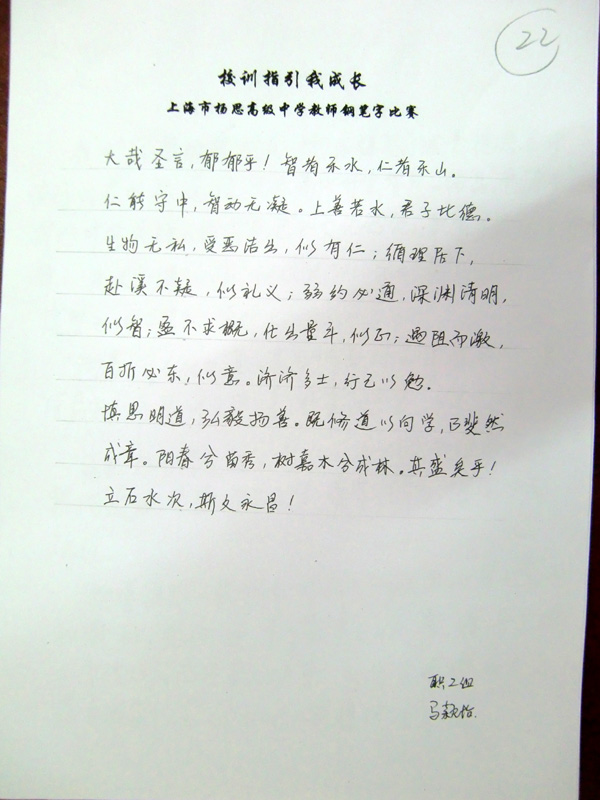 22
校训指引我成长
上海市杨思高级中学教师钢笔字比赛
大哉圣言，郁郁乎！智者乐水，仁者乐山。
仁能守中，智动无凝。上善若水，君子比德。
生物无私，受恶洁出，似有仁；循理居下，
赴溪不疑，似礼义；弱约必通，深渊清明，
似智；盈不求概，仕出量斗，似正；遇阻而激，
百折必东，似意。济济多士，行己以勉。
慎思明道，弘毅扬善。既修道以向学，已斐然
成章。阳春兮苗秀，树嘉木兮成林。其盛矣乎！
立石水次，斯文永昌！
职工组
马